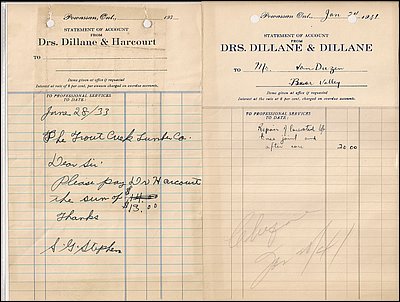 Powassan, Ont., 193
STATEMENT OF ACCOUNT
FROM
Drs. Dillane & Harcourt
TO
Items given at office if requested
Interest at rate of 8 per cent. per annum charged on overdue accounts.
TO PROFESSIONAL SERVICES
TO DATE:
June 28/33
The Trout Creek Lumber Co.
Dear Sir:
Please pay Dr Harcourt
the sum of
$13.00
Thanks
S G Stephen
Powassan Ont. Jan 2nd 1931.
STATEMENT OF ACCOUNT
FROM
DRS. DILLANE & DILLANE
TO Mr. Van Duzen
Bear Valley
Items given at office if requested.
Interest at the rate of 8 per cent, charged on overdue accounts.
TO PROFESSIONAL SERVICES
TO DATE:
Repair of
Knee joint and
after care 20.00
Jan